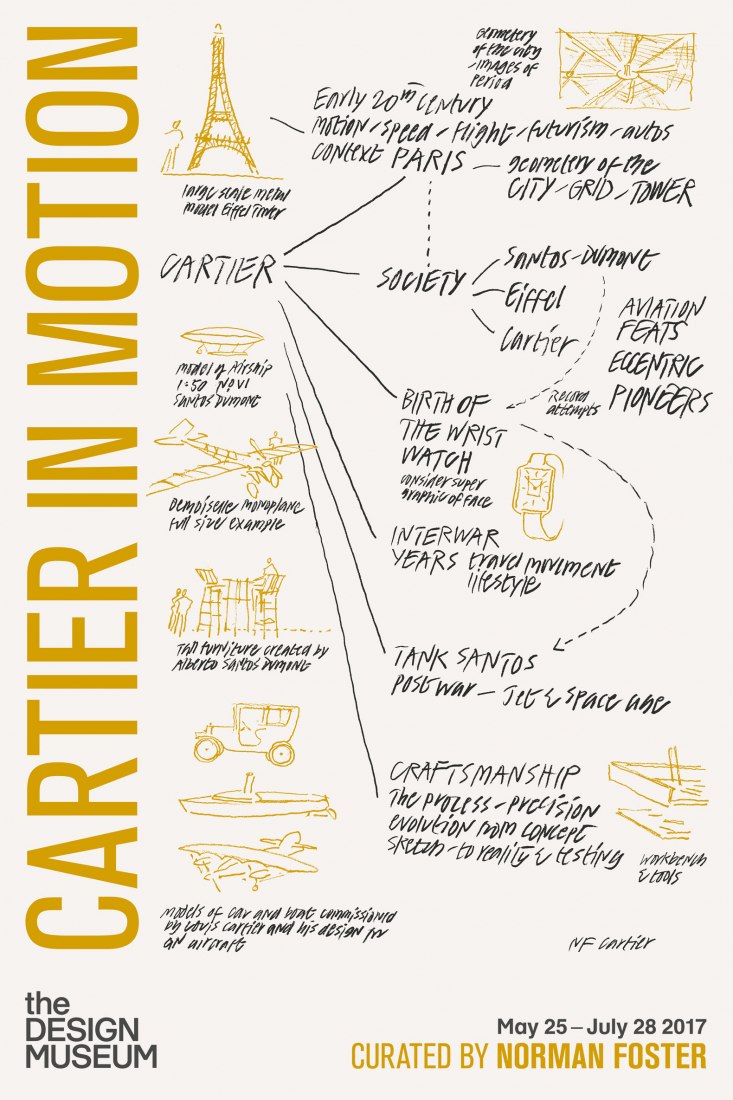 CARTIER IN MOTION
Geometery
of the city
-images of
Period
Early 20th Century
motion/speed/flight/futurism/autos
context PARIS
geometery of the
CITY/GRID/TOWER
large scale metal
model Eiffel Tower
CARTIER
SOCIETY
Santos-Dumont
Eiffel
Cartier
AVIATION
FEATS
ECCENTRIC
PIONEERS
model of Airship
1:50 No VI
Santos Dumont
Record
attempts
BIRTH OF
THE WRIST
WATCH
consider super
graphic of face
Demoiselle monoplane
full size example
INTERWAR
YEARS travel movement
lifestyle
Tall furniture created by
Alberto Santos Dumont
TANK SANTOS
Post war — Jet & Space age
CRAFTSMANSHIP
The process - precision
evolution from concept
sketch - to reality & testing
workbench
& tools
models of car and boat commissioned
by Louis Cartier and his design for
an aircraft
NF Cartier
the
DESIGN
MUSEUM
May 25 – July 28 2017
CURATED BY NORMAN FOSTER